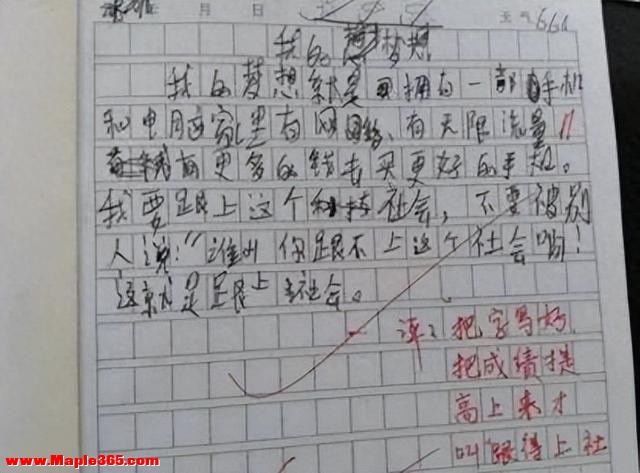 月 日
我的梦想
我的梦想就是拥有一部手机
和电脑家里有网络、有无限流量
有更多的钱去买更好的手机。
我要跟上这个社会，不要被别
人说:"谁叫你跟不上这个社会哟!
这就是跟上社会。
评:把字写好,
把成绩提
高上来才
叫"跟得上社
www.Maple365.com